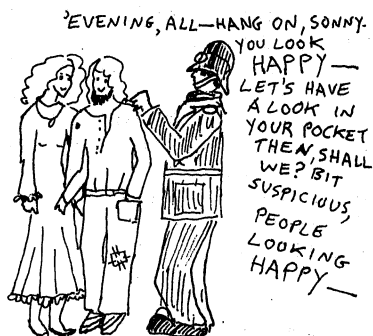 'EVENING, ALL—HANG ON, SONNY-
YOU LOOK
HAPPY—
LET'S HAVE
A LOOK IN
YOUR POCKET
THEN, SHALL
WE? BIT
SUSPICIOUS,
PEOPLE
LOOKING
HAPPY—